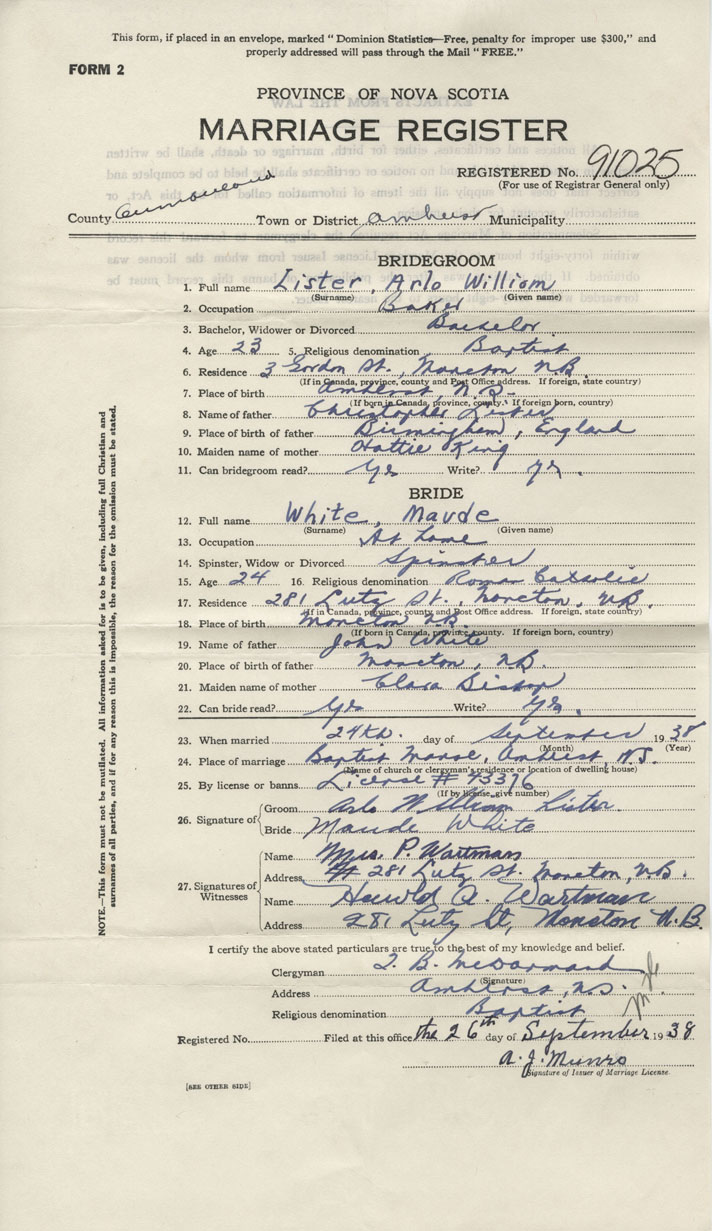 This form, if placed in an envelope, marked " Dominion Statistics—Free, penalty for improper use $300," and
properly addressed will pass through the Mail " FREE."
FORM 2
PROVINCE OF NOVA SCOTIA
MARRIAGE REGISTER
REGISTERED No. 91025
(For use of Registrar General only)
County Cumberland Town or District Amherst Municipality
BRIDEGROOM
1. Full name Lister, Arlo William
(Surname) (Given name)
2. Occupation Baker
3. Bachelor, Widower or Divorced Bachelor
4. Age 23 5. Religious denomination Baptist
6. Residence 3 Gordon St., Moncton N.B.
(If in Canada, province, county and Post Office address. If foreign, state country)
7. Place of birth Amherst N.S.
(If born in Canada, province, county. If foreign born, country)
8. Name of father Christopher Lister
9. Place of birth of father Birmingham, England
10. Maiden name of mother Hattie King
11. Can bridegroom read? Yes Write? Yes.
BRIDE
12. Full name White, Maude
(Surname) (Given name)
13. Occupation At home
14. Spinster, Widow or Divorced Spinster
15. Age 24 16. Religious denomination Roman Catholic
17. Residence 281 Lutz St., Moncton, N.B.
(If in Canada, province, county and Post Office address. If foreign, state country)
18. Place of birth Moncton N.B.
(If born in Canada, province county. If foreign born, country)
19. Name of father John White
20. Place of birth of father Moncton, N.B.
21. Maiden name of mother Clara Bishop
22. Can bride read? Yes Write? Yes.
23. When married 24th. day of September 1938
(Month) (Year)
24. Place of marriage Baptist Manse, Amherst, N.S.
(Name of church or clergyman's residence or location of dwelling house)
25. By license or banns License # 43376
(If by license, give number)
26. Signature of Groom Arlo William Lister
Bride Maude White
27. Signatures of Witnesses
Name Mrs. P. Wartman
Address # 281 Lutz St. Moncton, N.B.
Name Harold A. Wartman
Address 281 Lutz St, Moncton N.B.
I certify the above stated particulars are true to the best of my knowledge and belief.
Clergyman B. McDormand
(Signature)
Address Amherst, N.S.
Religious denomination Baptist
Registered No. Filed at this office the 26th day of September 1938
A. J. Munro
Signature of Issuer of Marriage License.
[SEE OTHER SIDE]
NOTE.—This form must not be mutilated. All information asked for is to be given, including full Christian and
surnames of all parties, and if for any reason this is impossible, the reason for the omission must be stated.